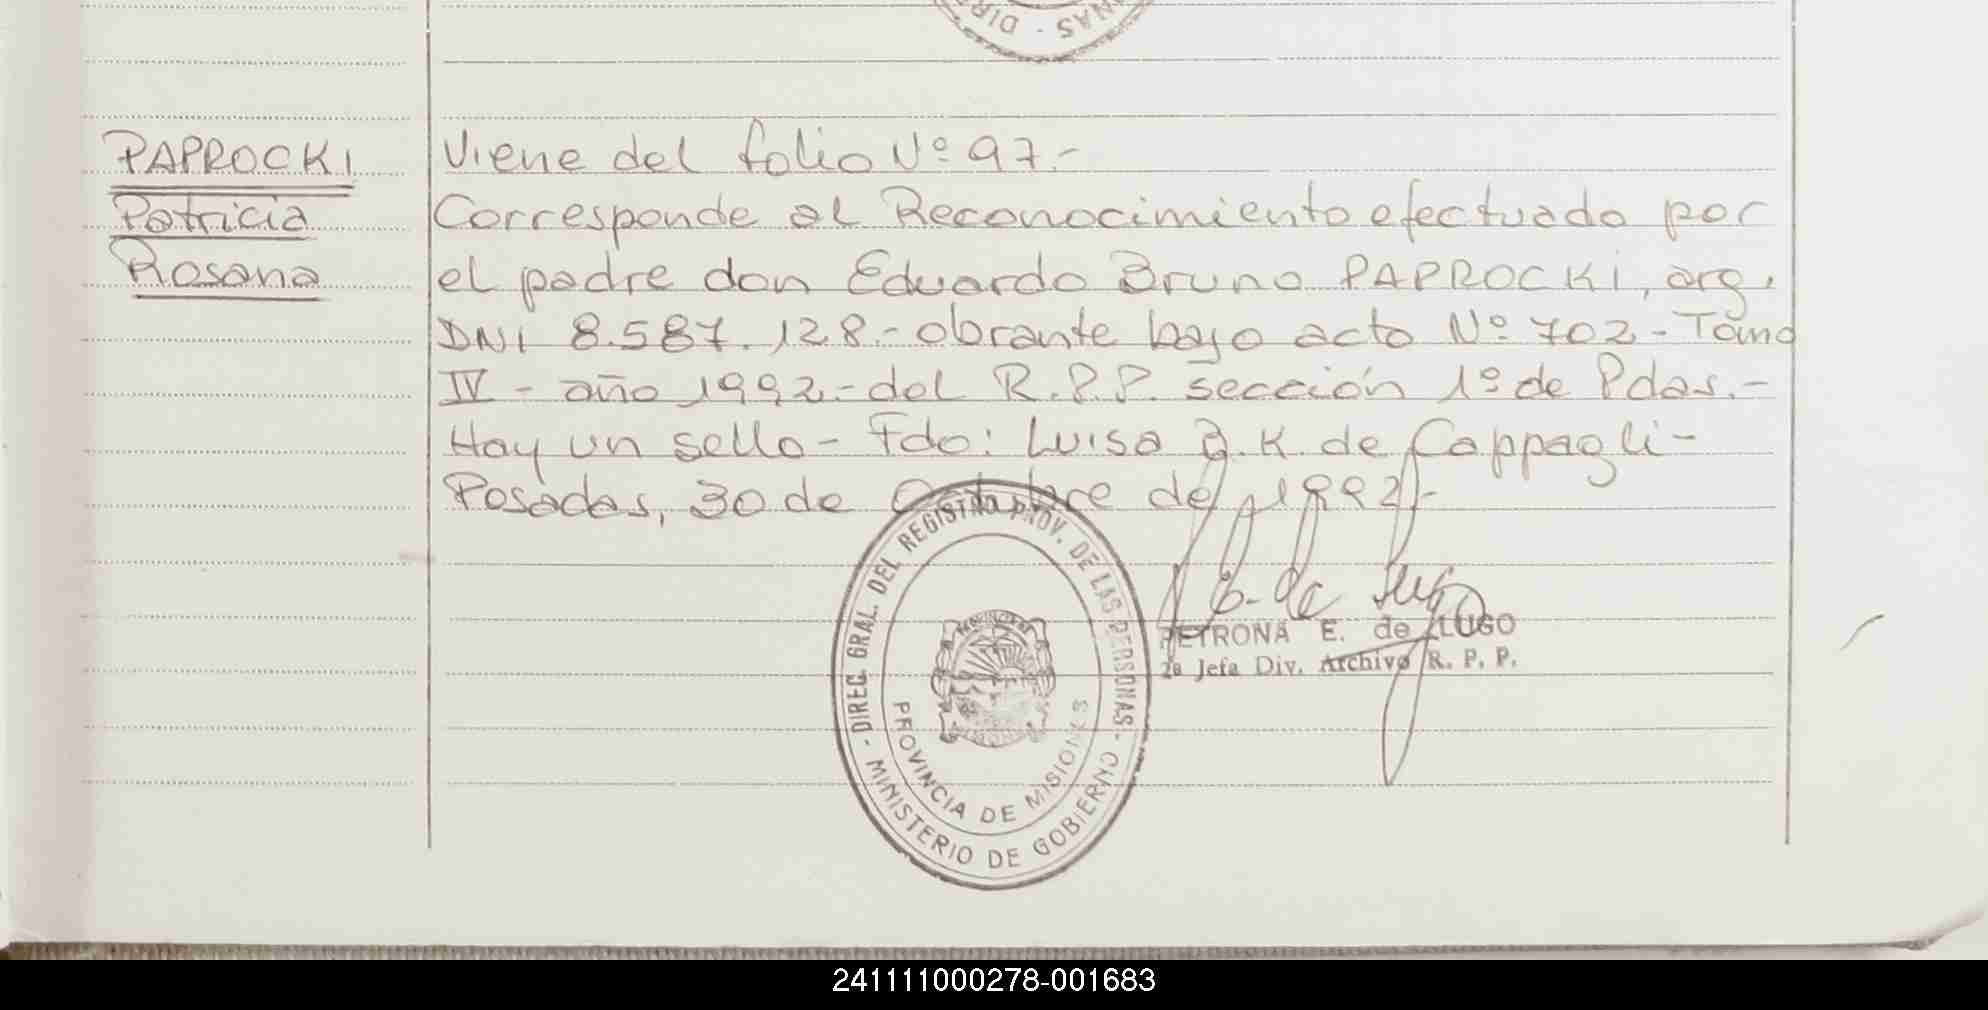 DIR
- NAS
PAPROCKI
Patricia
Rosana
Viene del folio Nº 97.-
Corresponde al Reconocimiento efectuado por
el padre don Eduardo Bruno PAPROCKI, arg.
DNI 8.587.128.- obrante bajo acta Nº 702 - Tomo
IV - año 1992.- del R.P.P. sección 1º de Pdas.-
Hay un sello - Fdo: Luisa B.K. de Cappagli -
Posadas, 30 de Octubre de 1992.-
- DIREC. GRAL. DEL REGISTRO PROV. DE LAS PERSONAS -
MINISTERIO DE GOBIERNO
PROVINCIA DE MISIONES
PETRONA E. de LUGO
2a Jefa Div. Archivo R. P. P.
241111000278-001683